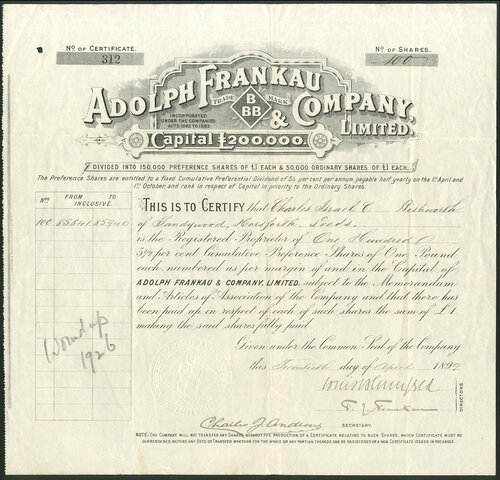 No OF CERTIFICATE.
312
No OF SHARES.
100
ADOLPH FRANKAU
TRADE MARK
B
BB
& COMPANY,
LIMITED.
INCORPORATED
UNDER THE COMPANIES
ACTS 1862 TO 1890.
Capital £200,000.
DIVIDED INTO 150,000 PREFERENCE SHARES OF £1 EACH & 50,000 ORDINARY SHARES OF £1 EACH.
The Preference Shares are entitled to a fixed Cumulative Preferential Dividend of 5½ per cent per annum, payable half yearly on the 1st April and
1st October, and rank in respect of Capital in priority to the Ordinary Shares.
Nos
FROM TO
INCLUSIVE.
100 35841 35940
THIS IS TO CERTIFY that Charles Israel C Rishworth
of Sandywood, Horsforth, Leeds.
is the Registered Proprietor of One Hundred
5½ per cent Cumulative Preference Shares of One Pound
each, numbered as per margin of and in the Capital of
ADOLPH FRANKAU & COMPANY, LIMITED. subject to the Memorandum
and Articles of Association of the Company and that there has
been paid up in respect of each of such shares the sum of £1
making the said shares fully paid.
Given under the Common Seal of the Company
this Twentieth day of April 1892
Wound up
1926
DIRECTORS.
Charles J. Andrews
SECRETARY
NOTE: THE COMPANY WILL NOT TRANSFER ANY SHARES, WITHOUT THE PRODUCTION OF A CERTIFICATE RELATING TO SUCH SHARES, WHICH CERTIFICATE MUST BE
SURRENDERED BEFORE ANY DEED OF TRANSFER, WHETHER FOR THE WHOLE OR ANY PORTION THEREOF, CAN BE REGISTERED OR A NEW CERTIFICATE ISSUED IN EXCHANGE